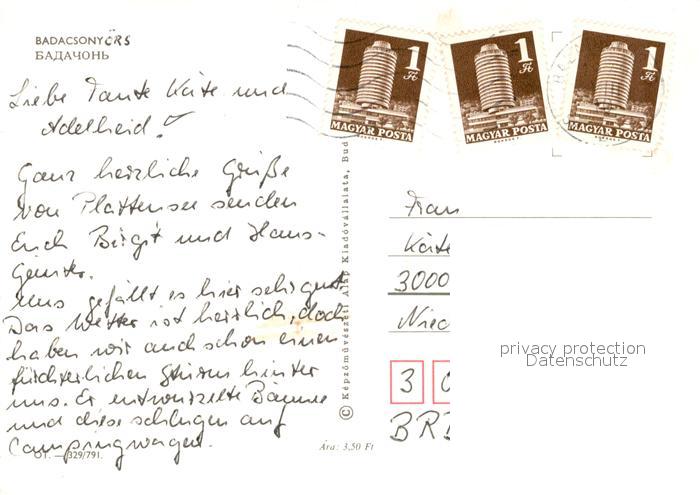 BADACSONYÖRS
БАДАЧОНЬ
Liebe Tante Käte und
Adelheid!
Ganz herzliche Grüße
von Plattensee senden
Euch Birgit und Hans-
Günter.
Uns gefällt es hier sehr gut
Das Wetter ist herrlich, doch
haben wir auch schon einen
fürchterlichen Sturm hinter
uns. Er entwurzelte Bäume
und diese schlugen auf
Campingwagen.
OT. — 329/791.
Ára: 3,50 Ft
© Képzőművészeti Alap Kiadóvállalata, Bud
1 Ft
MAGYAR POSTA
1 Ft
MAGYAR POSTA
1 Ft
MAGYAR POSTA
Frau
Käte
3000
3
privacy protection
Datenschutz